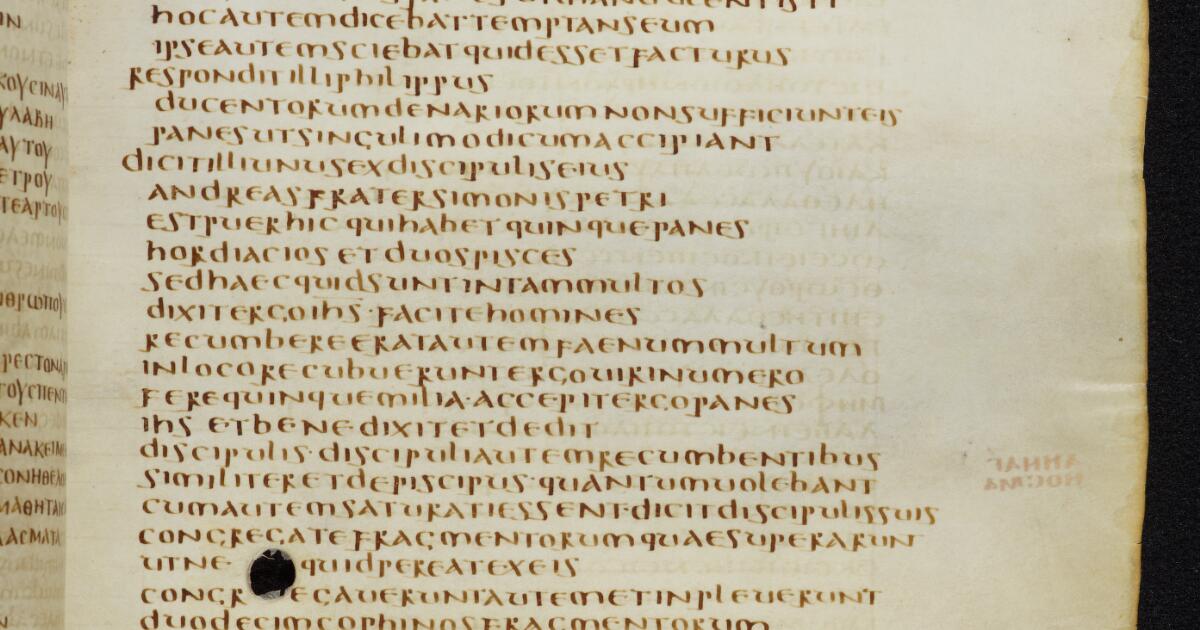 hocautemdicebattemptanseum
ipseautemsciebatquidessetfacturus
responditilliphilippus
ducentorumdenariorumnonsufficiunteis
panesutsingulimodicumaccipiant
dicitilliunusexdiscipuliseius
andreasfratersimonispetri
estpuerhic quihabetquinquepanes
hordiacios et duospisces
sedhaecquidsuntintammultos
dixitergoihs·facitehomines
recumbereeratautemfaenummultum
inlocorecubueruntergouirinumero
ferequinquemilia·accepitergopanes
ihs etbene·dixitetdedit
discipulis·discipuliautemrecumbentibus
similiteretdepiscipus·quantumuolebant
cumautemsaturatiessent·dicitdiscipulissuis
congregatefragmentorumquaesuperarunt
utne quidpereatexeis
congr egaueruntautemetinpleuerunt
duodecimcophinosfragmentorum
ΚΟΥCΙΝΑΥ
ΥΛΑΒΗ
ΑΥΤΟΥ
ΕΤΡΟΥ
ΚΕΝ